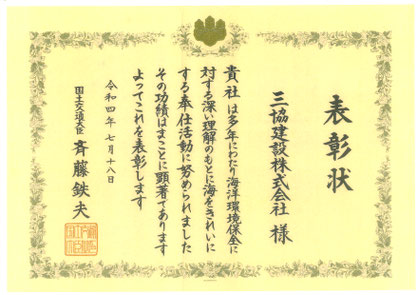 表彰状
三協建設株式会社 様
貴社は多年にわたり海洋環境保全に
対する深い理解のもとに海をきれいに
する奉仕活動に努められました
その功績はまことに顕著であります
よってこれを表彰します
令和四年七月十八日
国土交通大臣 斉藤鉄夫